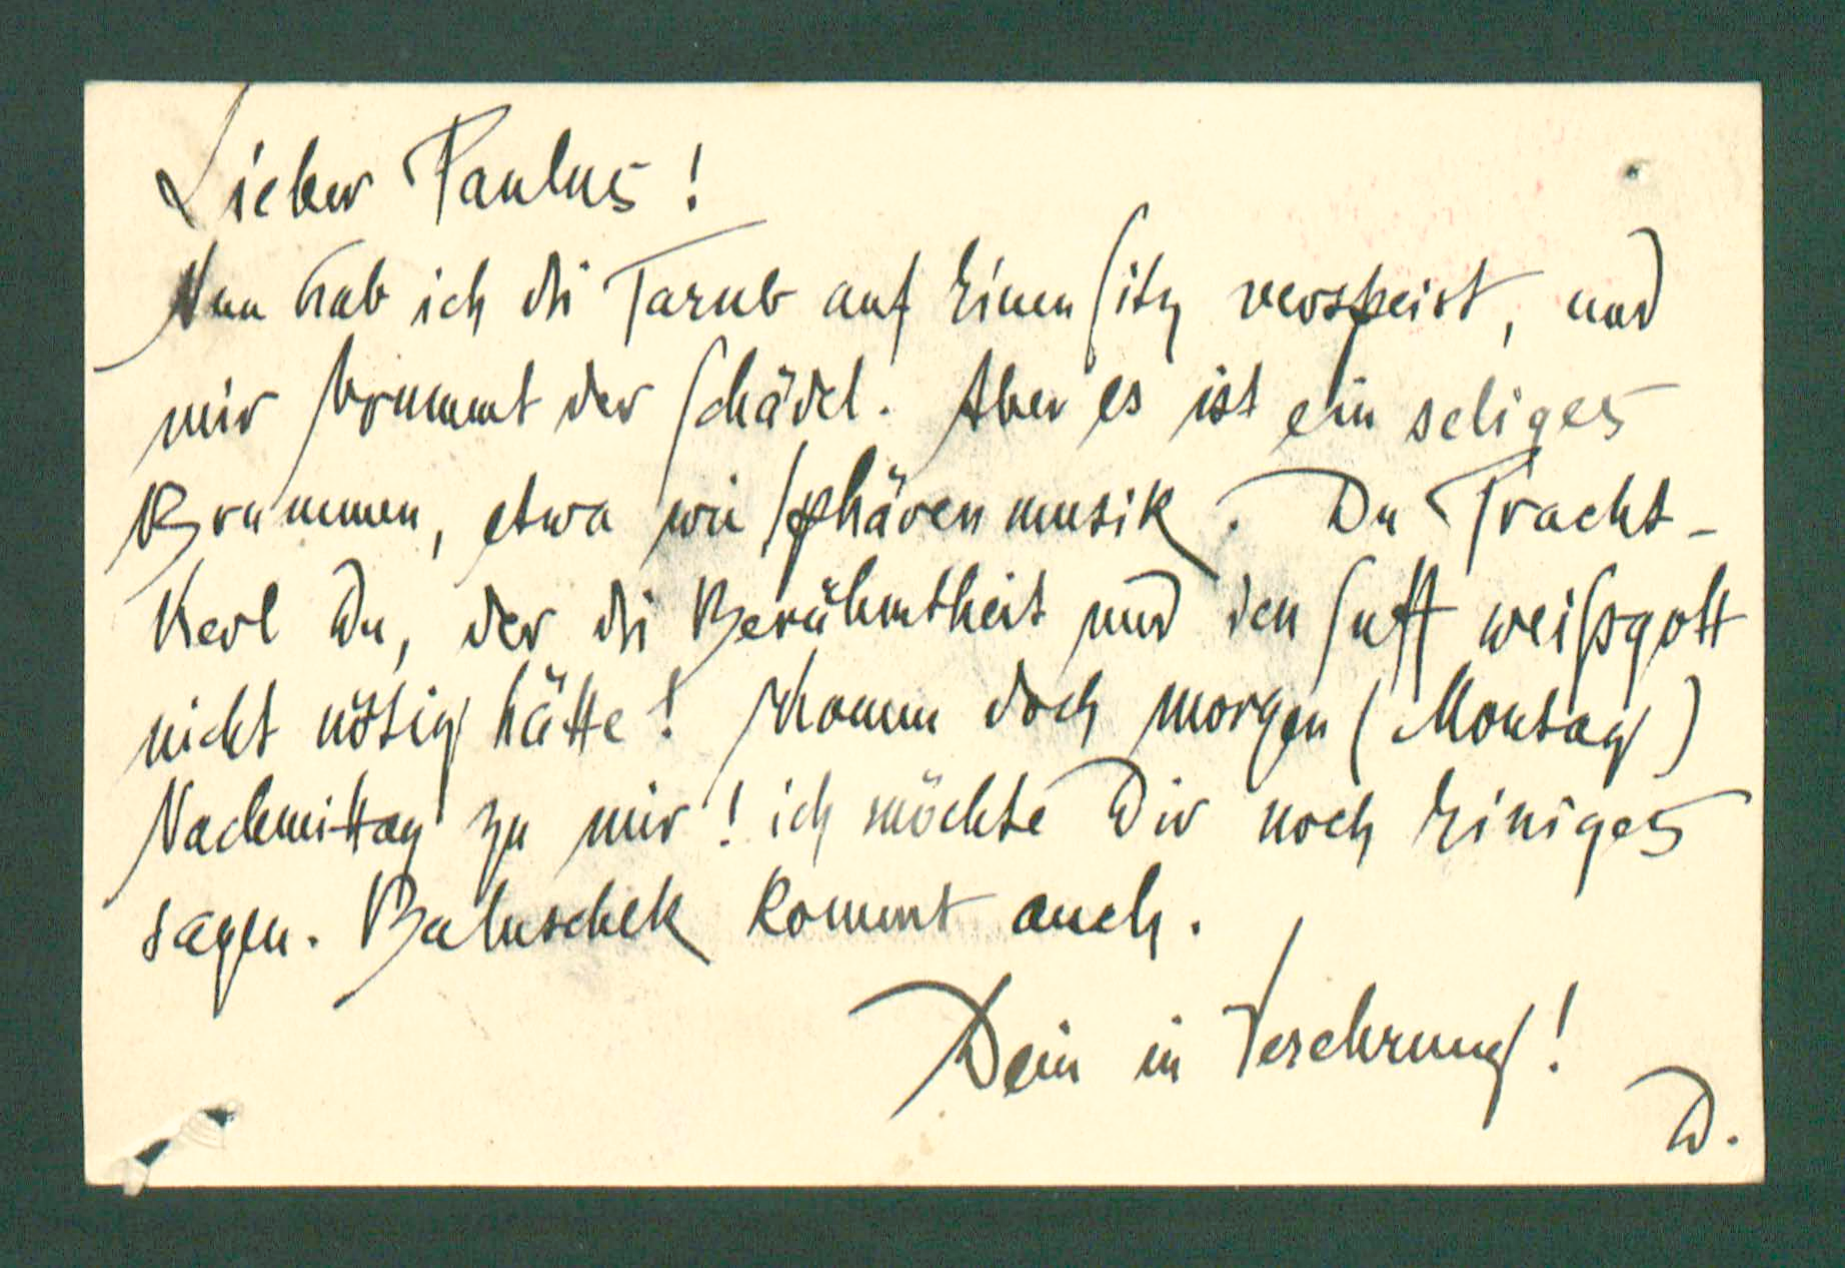 Lieber Paulus!
Nun hab ich die Tarub auf Einen Sitz verspeist, und
mir brummt der Schädel. Aber es ist ein seliges
Brummen, etwa wie Sphärenmusik. Du Pracht-
Kerl Du, der die Berühmtheit und den Suff weißgott
nicht nötig hätte! Komm doch morgen (Montag)
Nachmittag zu mir! ich möchte Dir noch Einiges
sagen. Baluschek kommt auch.
Dein in Verehrung!
D.